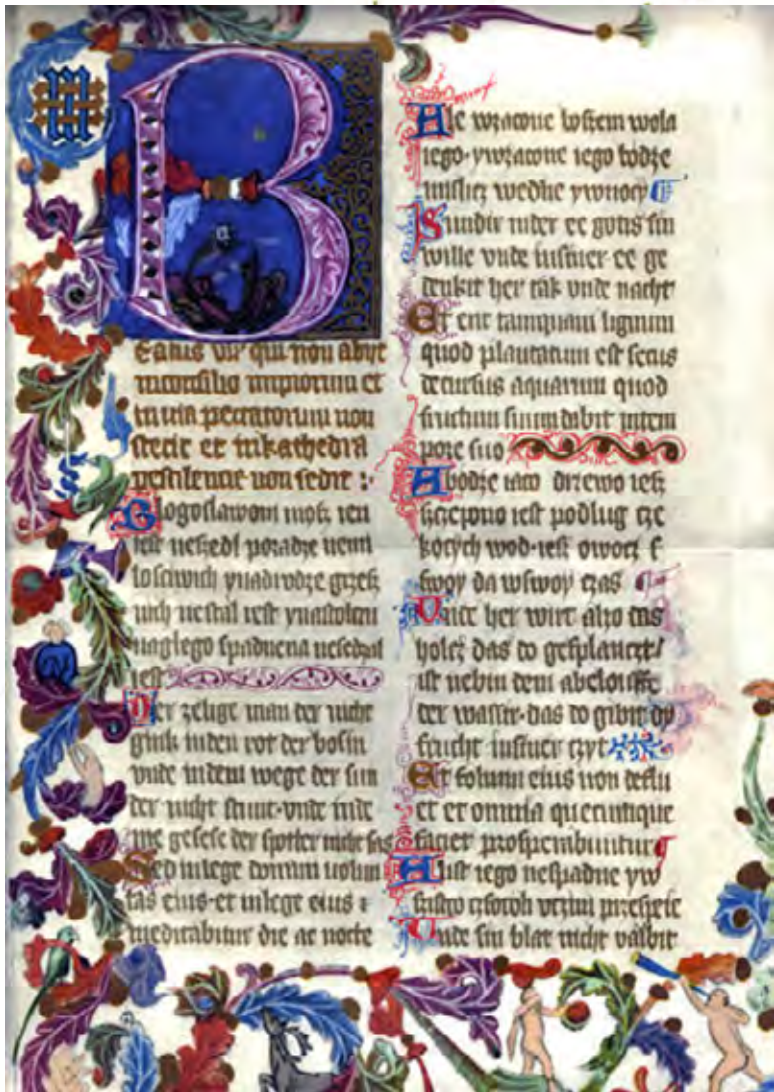 B
Eatus vir qui non abyt
inconsilio impiorum et
in via peccatorum non
stetit et inkathedra
pestilencie non sedit :
Blogoslawoni mosz ien
iest neszedl poradze nemi
losciwich ynadrodze gresz
nich nestal iest ynastolcu
naglego spadnena nesedzal
iest
Der zelige man der nicht
gink inden rot der bosin
vnde indem wege der sun
der nicht stunt·vnde inde
me gesese der spotler nicht sas
Sed inlege domini uolun
tas eius·et inlege eius
meditabitur die ac nocte
Ale wzacone bosem wola
iego·ywzacone iego bodze
mislicz wedne ywnocy
Sundir inder ee gotis sin
wille vnde insiner ee ge
denkit her tak vnde nacht
Et erit tamquam lignum
quod plantatum est secus
decursus aquarum quod
fructum suum dabit intem
pore suo
A bodze iaco drzewo iesz
szczepono iest podlug cze
kocych wod·iesz owocz
swoy da wswoy czas
Unde her wirt alzo das
holcz das do geplanczt
ist nebin dem abelouffe
der wassir·das do gibit dy
frucht insiner czyt
Et folium eius non deflu
et et omnia quecunque
faciet prosperabuntur
A list iego nespadne yw
szistko czsokoli uczini przespeie
Unde sin blat nicht valbit